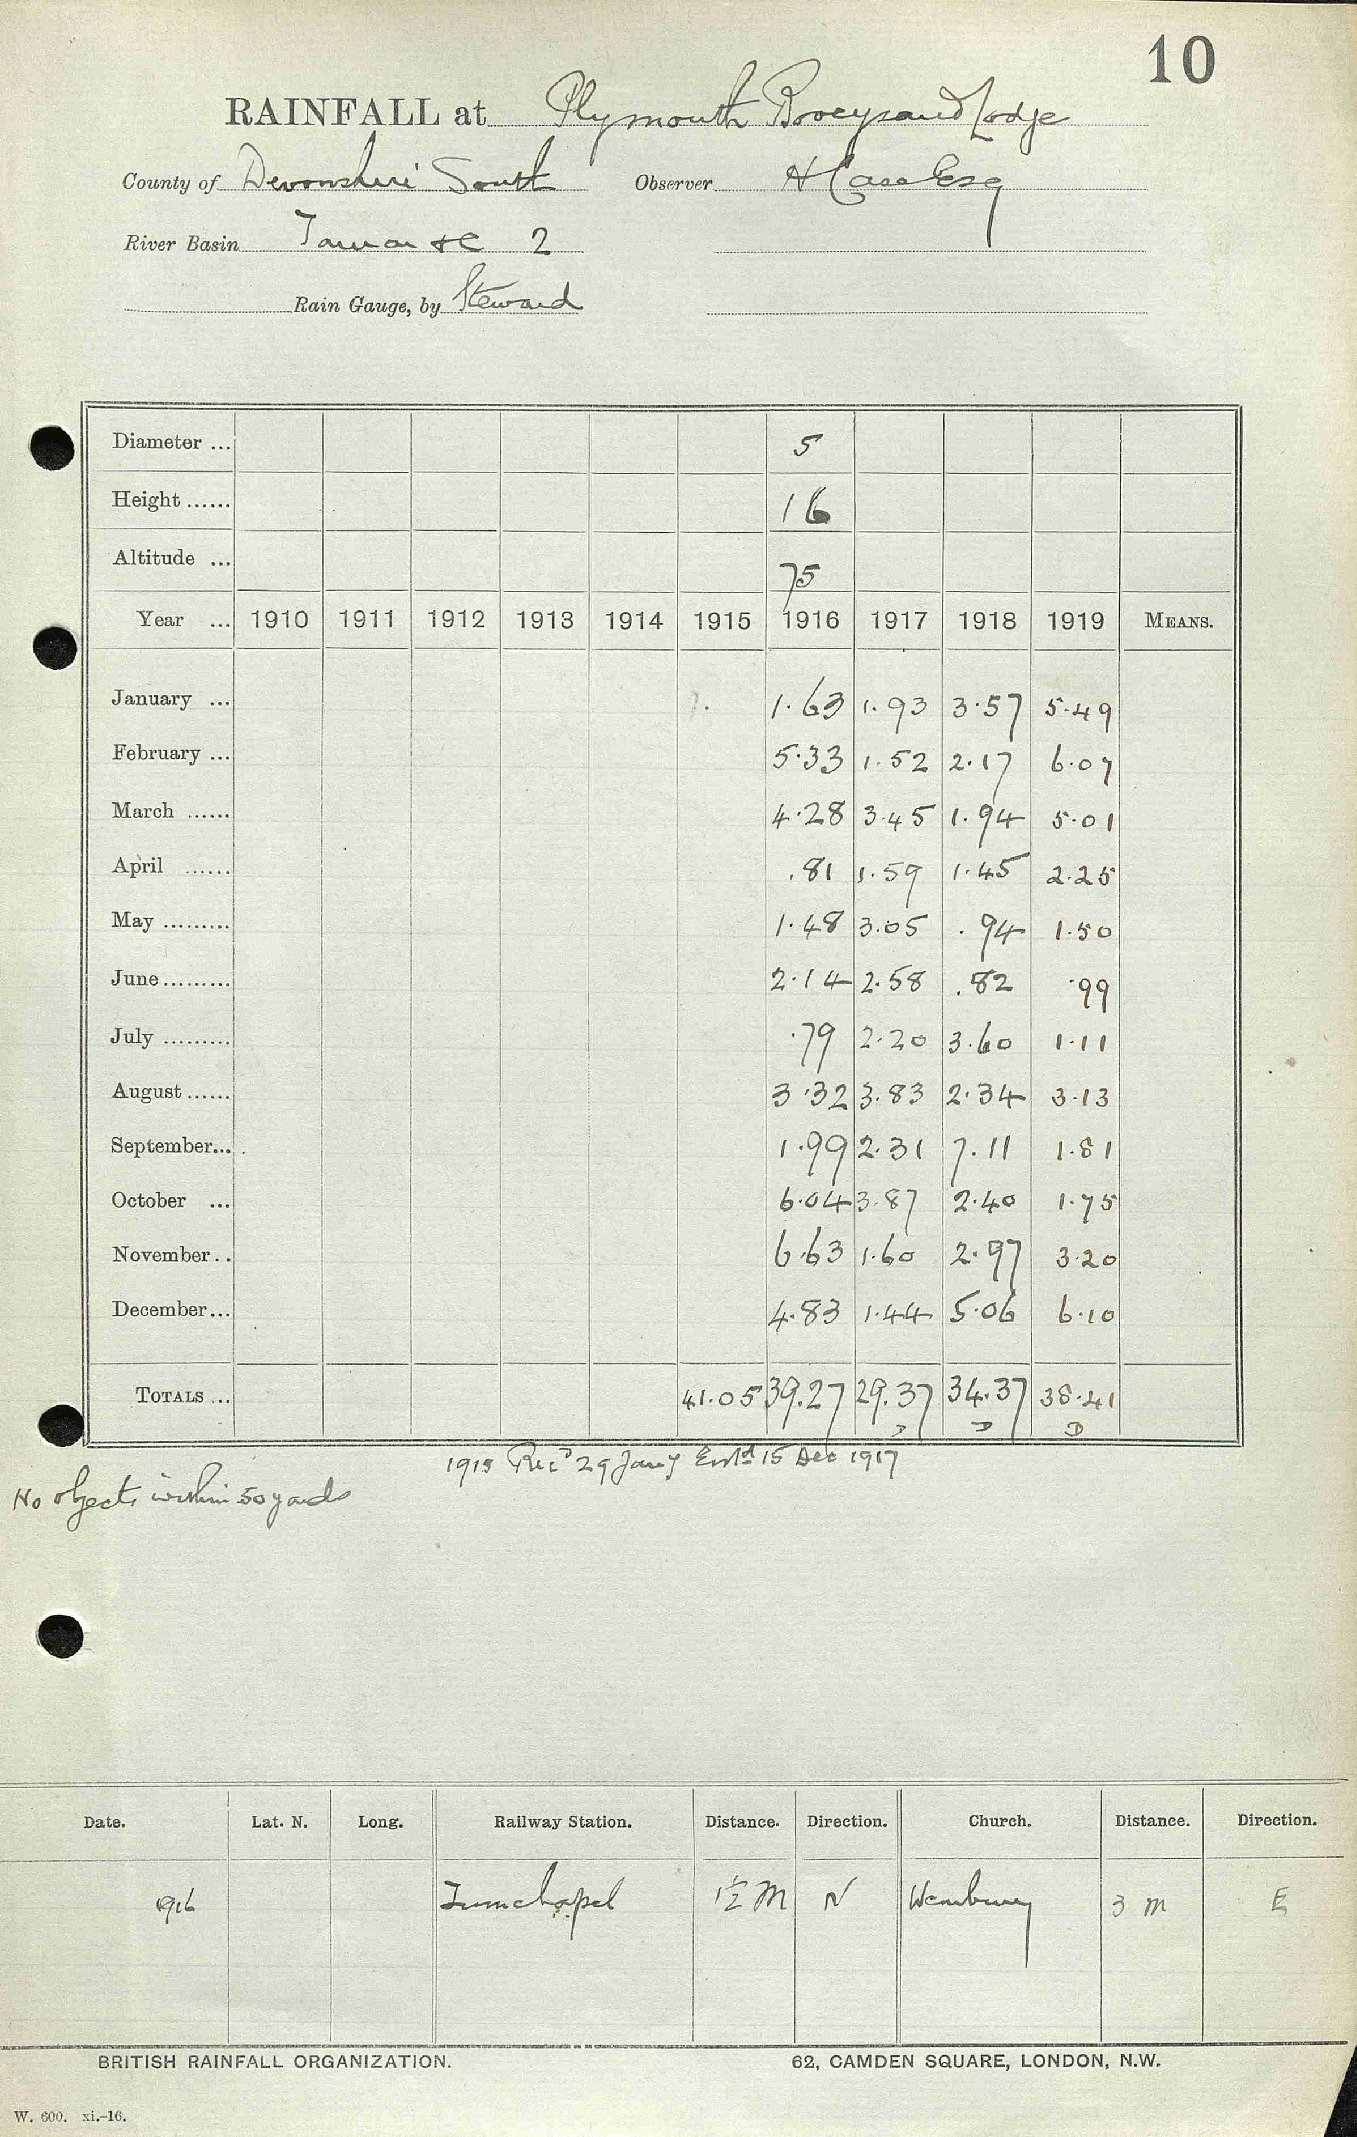 10
RAINFALL at Plymouth Boveysand Lodge
County of Devonshire South Observer H Case Esq
River Basin Tamar &c 2
Rain Gauge, by Steward
Diameter ... 5
Height ...... 16
Altitude ... 75
Year ... 1910 1911 1912 1913 1914 1915 1916 1917 1918 1919 MEANS.
January ... 1. 1.63 1.93 3.57 5.49
February ... 5.33 1.52 2.17 6.07
March ...... 4.28 3.45 1.94 5.01
April ...... .81 1.59 1.45 2.25
May ......... 1.48 3.05 .94 1.50
June ......... 2.14 2.58 .82 .99
July ......... .79 2.20 3.60 1.11
August ...... 3.32 3.83 2.34 3.13
September... 1.99 2.31 7.11 1.81
October ... 6.04 3.87 2.40 1.75
November.. 6.63 1.60 2.97 3.20
December... 4.83 1.44 5.06 6.10
TOTALS ... 41.05 39.27 29.37 34.37 38.41
D D D
1915 Recd 29 Jany Entd 15 Dec 1917
No objects within 50 yards
Date. Lat. N. Long. Railway Station. Distance. Direction. Church. Distance. Direction.
1916 Turnchapel 1½ M N Wembury 3 m E
BRITISH RAINFALL ORGANIZATION. 62, CAMDEN SQUARE, LONDON, N.W.
W. 600. xi.-16.